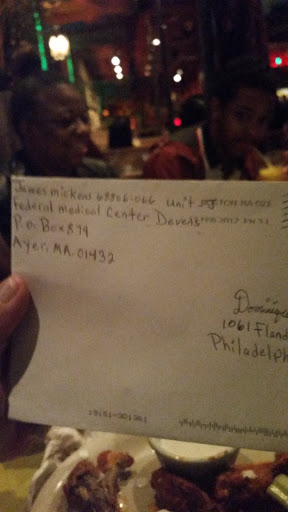 James mickens 68806-066 Unit
Federal medical Center Devens
P.O. Box 879
Ayer, MA. 01432
Dominique
1061 Fland
Philadelph